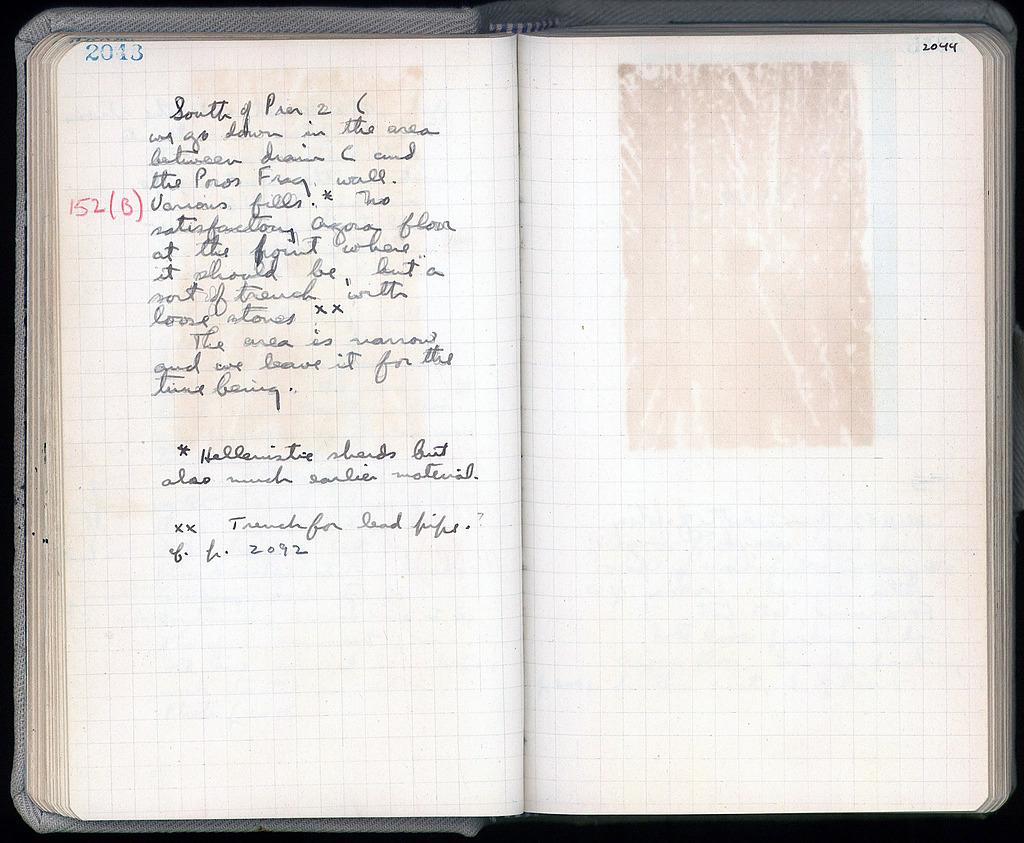 2043
South of Pier 2 (
we go down in the area
between drain C and
the Poros Frag. wall.
152(B) Various fills.* No
satisfactory Agora floor
at the point where
it should be, but a
sort of trench with
loose stones xx
The area is narrow
and we leave it for the
time being.
* Hellenistic sherds but
also much earlier material.
xx Trench for lead pipe.?
cf. p. 2092
2044